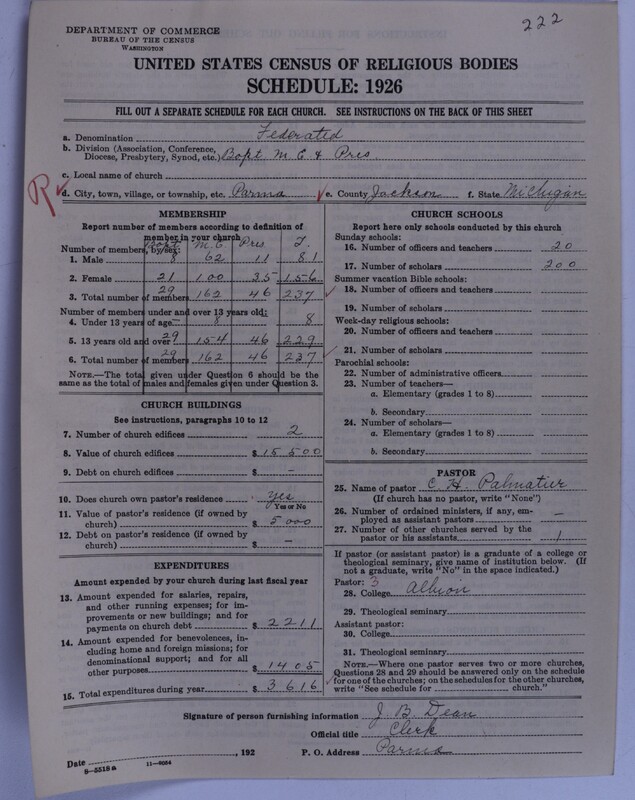 222
DEPARTMENT OF COMMERCE
BUREAU OF THE CENSUS
WASHINGTON
UNITED STATES CENSUS OF RELIGIOUS BODIES
SCHEDULE: 1926
FILL OUT A SEPARATE SCHEDULE FOR EACH CHURCH. SEE INSTRUCTIONS ON THE BACK OF THIS SHEET
a. Denomination Federated
b. Division (Association, Conference, Diocese, Presbytery, Synod, etc.) Bapt M. E & Pres.
c. Local name of church
R d. City, town, village, or township, etc. Parma e. County Jackson f. State Michigan
MEMBERSHIP
Report number of members according to definition of
member in your church
Bapt M. E Pres T.
Number of members, by sex:
1. Male 8 62 11 81
2. Female 21 100 35 156
3. Total number of members 29 162 46 237
Number of members under and over 13 years old:
4. Under 13 years of age 8 8
5. 13 years old and over 29 154 46 229
6. Total number of members 29 162 46 237
NOTE.—The total given under Question 6 should be the
same as the total of males and females given under Question 3.
CHURCH BUILDINGS
See instructions, paragraphs 10 to 12
7. Number of church edifices 2
8. Value of church edifices $ 15 500
9. Debt on church edifices $ –
10. Does church own pastor's residence yes
Yes or No
11. Value of pastor's residence (if owned by
church) $ 5 000
12. Debt on pastor's residence (if owned by
church) $ –
EXPENDITURES
Amount expended by your church during last fiscal year
13. Amount expended for salaries, repairs,
and other running expenses; for im-
provements or new buildings; and for
payments on church debt $ 2211
14. Amount expended for benevolences,
including home and foreign missions; for
denominational support; and for all
other purposes $ 1405
15. Total expenditures during year $ 3616
CHURCH SCHOOLS
Report here only schools conducted by this church
Sunday schools:
16. Number of officers and teachers 20
17. Number of scholars 200
Summer vacation Bible schools:
18. Number of officers and teachers
19. Number of scholars
Week-day religious schools:
20. Number of officers and teachers
21. Number of scholars
Parochial schools:
22. Number of administrative officers
23. Number of teachers—
a. Elementary (grades 1 to 8)
b. Secondary
24. Number of scholars—
a. Elementary (grades 1 to 8)
b. Secondary
PASTOR
25. Name of pastor C. H. Palmatier
(If church has no pastor, write "None")
26. Number of ordained ministers, if any, em-
ployed as assistant pastors –
27. Number of other churches served by the
pastor or his assistants 1
If pastor (or assistant pastor) is a graduate of a college or
theological seminary, give name of institution below. (If
not a graduate, write "No" in the space indicated.)
Pastor: 3
28. College Albion
29. Theological seminary
Assistant pastor:
30. College
31. Theological seminary
NOTE.—Where one pastor serves two or more churches,
Questions 28 and 29 should be answered only on the schedule
for one of the churches; on the schedules for the other churches,
write "See schedule for church."
Signature of person furnishing information J. B. Dean
Official title Clerk
Date , 192 P. O. Address Parma
8—5518 a 11—9084